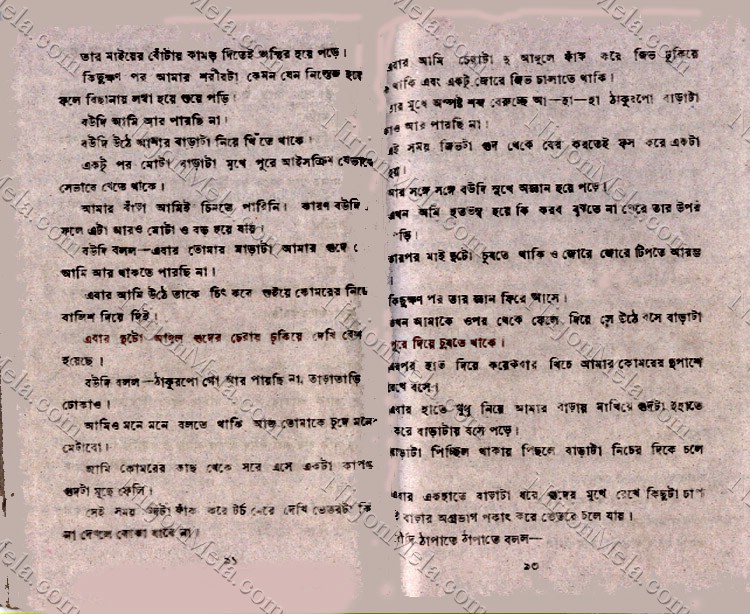 তার মাইয়ের বোঁটায় কামড় দিতেই অস্থির হয়ে পড়ে।
কিছুক্ষণ পর আমার শরীরটা কেমন যেন নিস্তেজ হয়ে
ফলে বিছানায় লম্বা হয়ে শুয়ে পড়ি।
বউদি আমি আর পারছি না।
বউদি উঠে আমার বাড়াটা নিয়ে খিঁচতে থাকে।
একটু পর মোটা বাড়াটা মুখে পুরে আইসক্রিম যেভাবে
সেভাবে খেতে থাকে।
আমার বাঁড়া আমিই চিনতে পারিনি। কারণ বউদি
ফলে এটা আরও মোটা ও বড় হয়ে যায়।
বউদি বলল—এবার তোমার বাড়াটা আমার গুদে
আমি আর থাকতে পারছি না।
এবার আমি উঠে তাকে চিৎ করে শুইয়ে কোমরের নিচে
বালিশ দিয়ে দিই।
এবার দুটো আঙুল গুদের চেরায় ঢুকিয়ে দেখি বেশ
হয়েছে।
বউদি বলল—ঠাকুরপো গো আর পারছি না, তাড়াতাড়ি
ঢোকাও।
আমিও মনে মনে বলতে থাকি আজ তোমাকে চুদে মনের
মেটাবো।
আমি কোমরের কাছ থেকে সরে এসে একটা কাপড়
গুদটা মুছে ফেলি।
সেই সময় গুদটা ফাঁক করে টর্চ মেরে দেখি ভেতরটা কি
না দেখলে বোঝা যাবে না।
৯১
এবার আমি চেরাটা দু আঙুলে ফাঁক করে জিভ ঢুকিয়ে
থাকি এবং একটু জোরে জিভ চালাতে থাকি।
তার মুখে অস্পষ্ট শব্দ বেরুচ্ছে আ—হা—হা ঠাকুরপো বাড়াটা
দাও আর পারছি না।
এই সময় জিভটা গুদ থেকে বের করতেই ফুস করে একটা
হয়।
আর সঙ্গে সঙ্গে বউদি সুখে অজ্ঞান হয়ে পড়ে।
এখন আমি হতভম্ব হয়ে কি করব বুঝতে না পেরে তার উপর
পড়ি।
তারপর মাই দুটো চুষতে থাকি ও জোরে জোরে টিপতে আরম্ভ
কিছুক্ষণ পর তার জ্ঞান ফিরে আসে।
তখন আমাকে ওপর থেকে ফেলে দিয়ে সে উঠে বসে বাড়াটা
পুরে দিয়ে চুষতে থাকে।
এরপর হাত দিয়ে কয়েকবার খিচে আমার কোমরের দুপাশে
রেখে বসে।
এবার হাতে থুথু নিয়ে আমার বাড়ায় মাখিয়ে গুদটা দুহাতে
করে বাড়াটায় বসে পড়ে।
বাড়াটা পিচ্ছিল থাকায় পিছলে বাড়াটা নিচের দিকে চলে
এবার একহাতে বাড়াটা ধরে গুদের মুখে রেখে কিছুটা চাপ
বাড়ার অগ্রভাগ পকাৎ করে ভেতরে চলে যায়।
বউদি ঠাপাতে ঠাপাতে বলল—
৯৩
NirjonMela.com